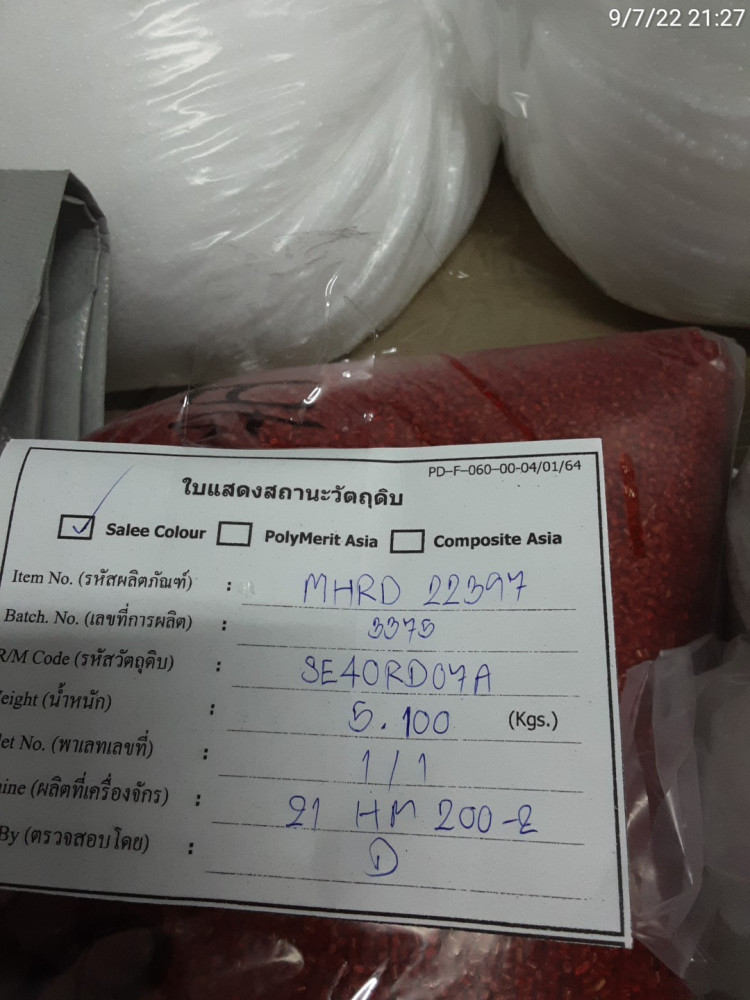 9/7/22 21:27
PD-F-060-00-04/01/64
ใบแสดงสถานะวัตถุดิบ
Salee Colour PolyMerit Asia Composite Asia
Item No. (รหัสผลิตภัณฑ์) : MHRD 22397
Batch. No. (เลขที่การผลิต) : 3375
R/M Code (รหัสวัตถุดิบ) : SE40RD07A
eight (น้ำหนัก) : 5.100 (Kgs.)
let No. (พาเลทเลขที่) : 1/1
ine (ผลิตที่เครื่องจักร) : 21 HM 200-2
By (ตรวจสอบโดย) : D